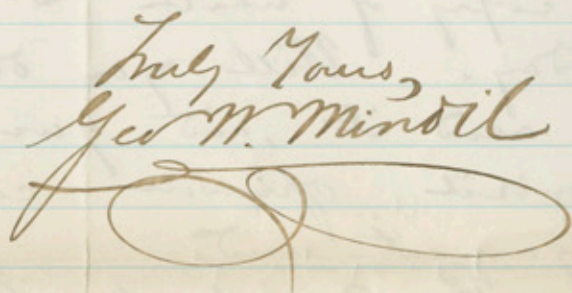 Truly Yours,
Geo W. Mindil